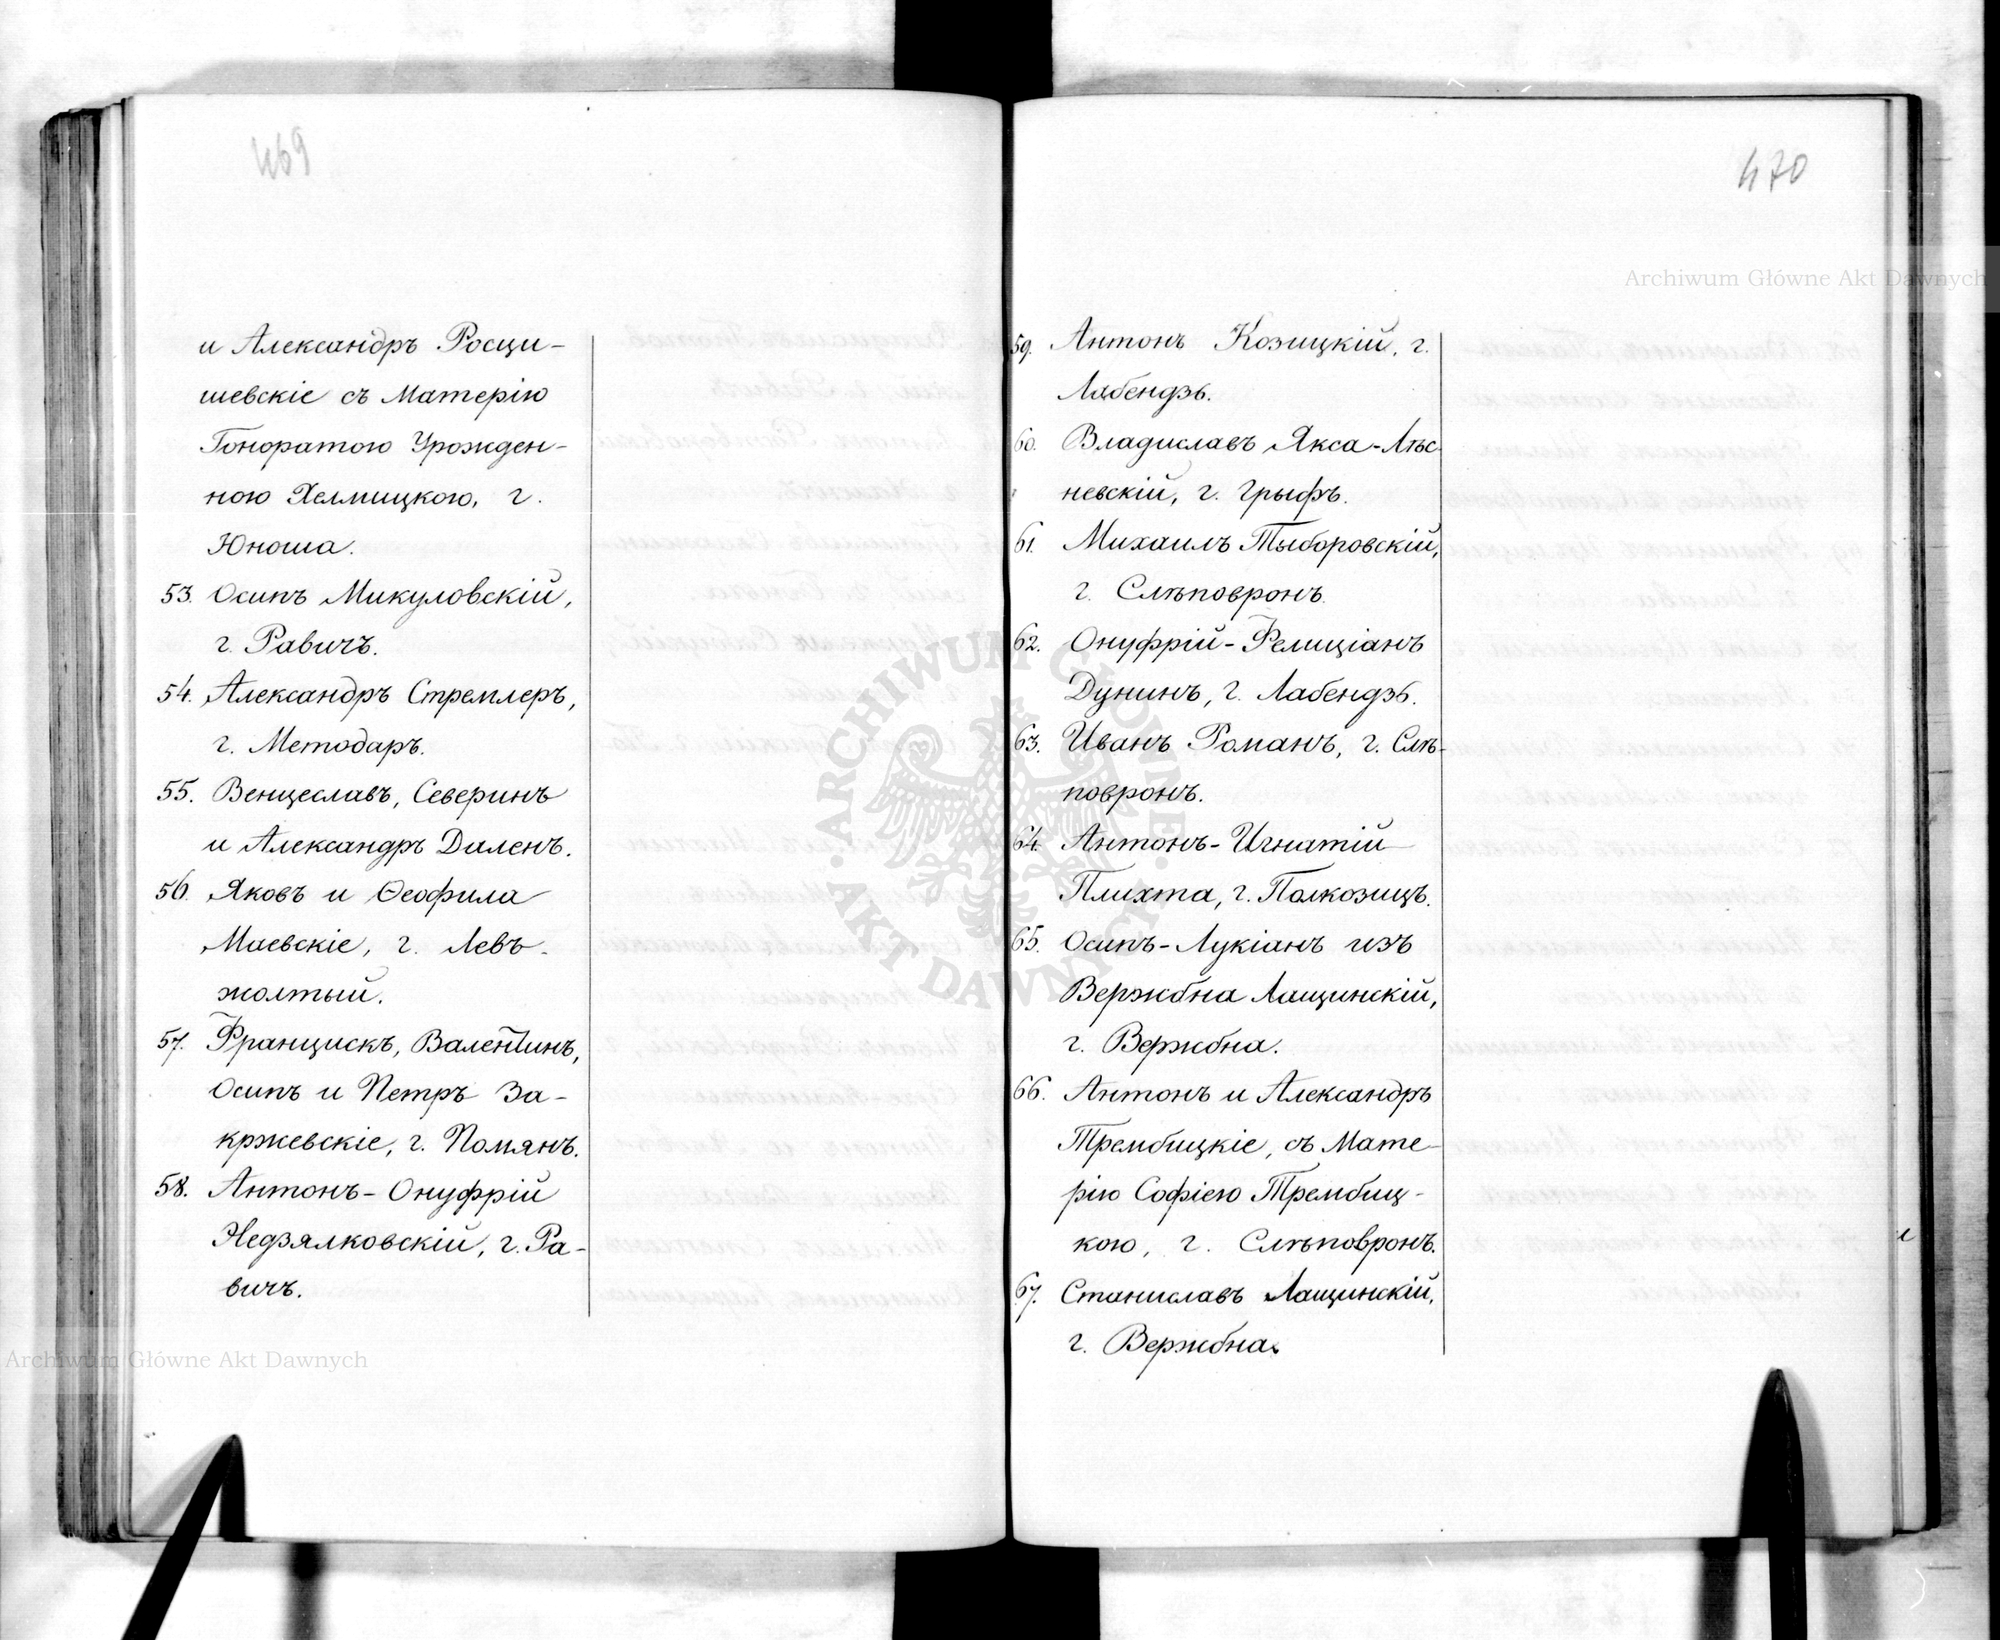 469
и Александръ Росци-
шевскіе съ Матерію
Гоноратою Урожден-
ною Хелмицкою, г.
Юноша.
53. Осипъ Микуловскій,
г. Равичъ.
54. Александръ Стремлеръ,
г. Методаръ.
55. Венцеславъ, Северинъ
и Александръ Даленъ.
56. Яковъ и Ѳеофила
Маевскіе, г. Левъ-
жолтый.
57. Францискъ, Валентинъ,
Осипъ и Петръ За-
кржевскіе, г. Помянъ.
58. Антонъ-Онуфрій
Недзялковскій, г. Ра-
вичъ.
470
59. Антонъ Козицкій, г.
Лабендзь.
60. Владиславъ Якса-Лѣс-
невскій, г. Грыфъ.
61. Михаилъ Тыборовскій,
г. Слѣповронъ.
62. Онуфрій-Фелиціанъ
Дунинъ, г. Лабендзь.
63. Иванъ Романъ, г. Слѣ-
повронъ.
64. Антонъ-Игнатій
Плихта, г. Полкозицъ.
65. Осипъ-Лукіанъ изъ
Вержбна Лащинскій,
г. Вержбна.
66. Антонъ и Александръ
Трембицкіе, съ Мате-
рію Софіею Трембиц-
кою, г. Слѣповронъ.
67. Станиславъ Лащинскій,
г. Вержбна.
Archiwum Główne Akt Dawnych
Archiwum Główne Akt Dawnych
ARCHIWUM GŁÓWNE AKT DAWNYCH